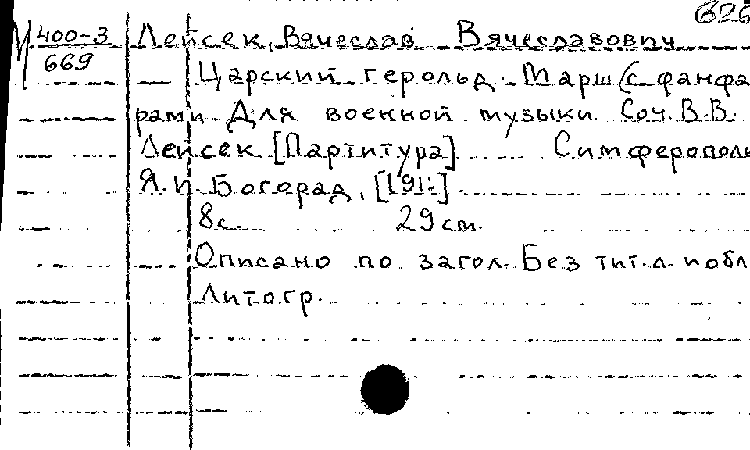 626
М 400-3 Лейсек, Вячеслав Вячеславович
669
Царский герольд. Марш (с фанфа-
рами Для военной музыки Соч. В.В.
Лейсек [Партитура] Симферополь
Я.И. Богорад, [191:]
8с. 29см.
Описано по загол. Без тит.л. и обл
Литогр.